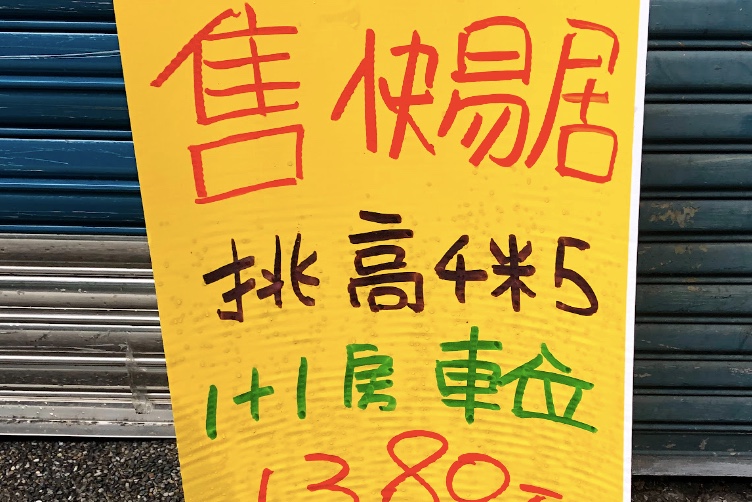 售快易居
挑高4米5
1+1房 車位
1380